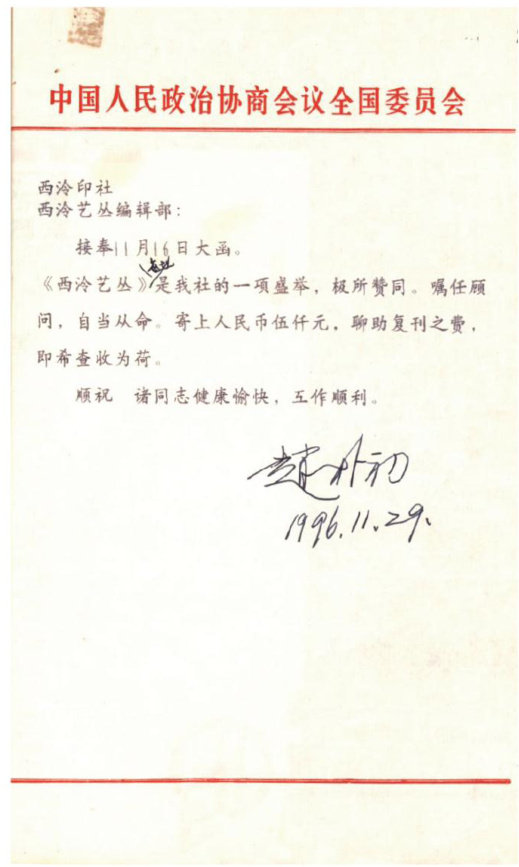 中国人民政治协商会议全国委员会
西泠印社
西泠艺丛编辑部：
接奉11月16日大函。
《西泠艺丛》是我社的一项盛举，极所赞同。嘱任顾
问，自当从命。寄上人民币伍仟元，聊助复刊之费，
即希查收为荷。
顺祝 诸同志健康愉快，工作顺利。
赵朴初
1996.11.29.